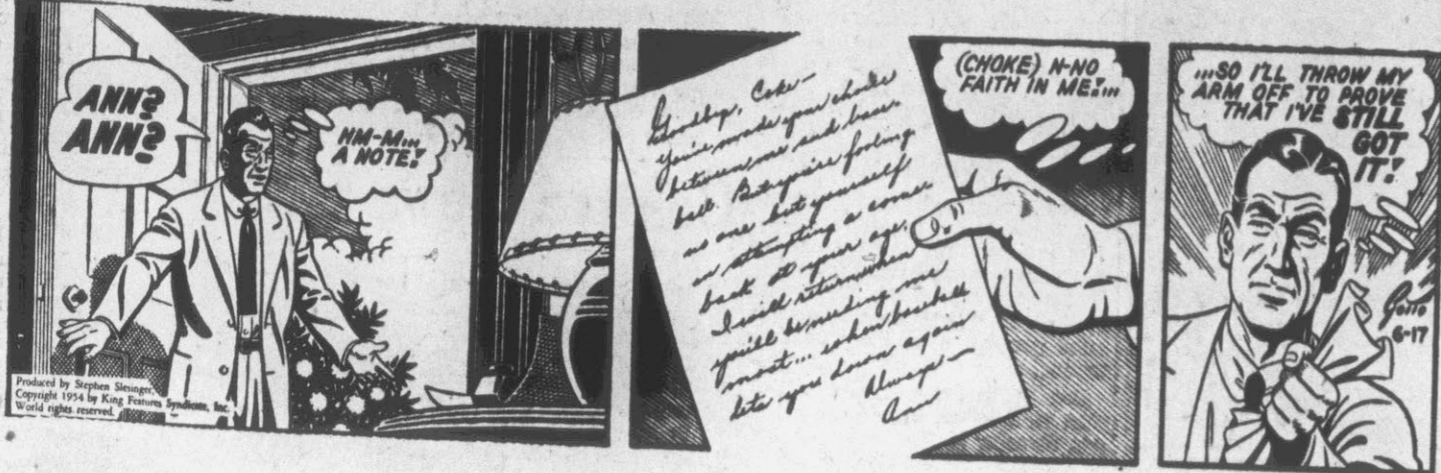 ANN?
ANN?
HM-M...
A NOTE!
Produced by Stephen Slesinger,
Copyright 1954 by King Features Syndicate, Inc.
World rights reserved.
Goodbye, Coke—
You've made your choice
between me and base-
ball. But you're fooling
no one but yourself
in attempting a come-
back at your age.
I will return when
you'll be needing me
most... when baseball
lets you down again
Always—
Ann
(CHOKE) N-NO
FAITH IN ME!...
...SO I'LL THROW MY
ARM OFF TO PROVE
THAT I'VE STILL
GOT
IT!
Gotto
6-17